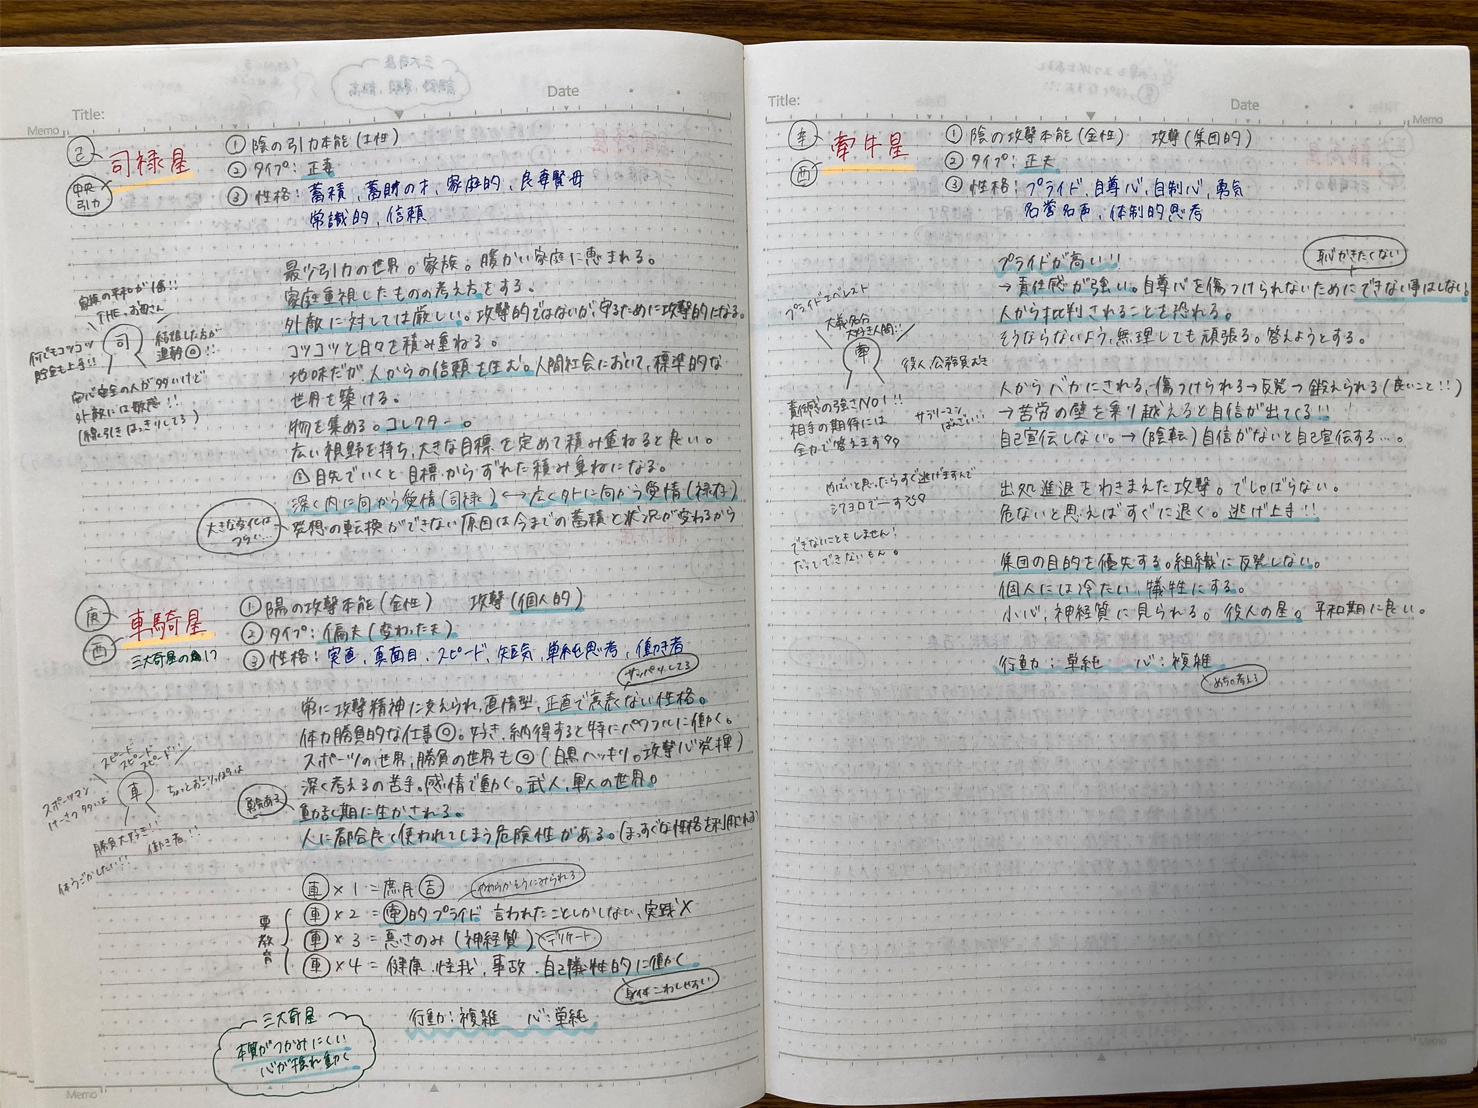 Title:
Date
Memo
己
司禄星
中央
引力
① 陰の引力本能(土性)
② タイプ:正妻
③ 性格:蓄積、蓄財の才、家庭的、良妻賢母
常識的、信頼
最少引力の世界。家族。暖かい家庭に恵まれる。
家庭重視したものの考え方をする。
外敵に対しては厳しい。攻撃的ではないが、守るために攻撃的になる。
コツコツと日々を積み重ねる。
地味だが、人からの信頼を生む。人間社会において、標準的な
世界を築ける。
物を集める。コレクター。
広い視野を持ち、大きな目標を定めて積み重ねると良い。
目先でいくと目標からずれた積み重ねになる。
深く内に向かう愛情(司禄)↔広く外に向かう愛情(禄存)
発想の転換ができない原因は今までの蓄積と状況が変わるから
大きな変化は
つらい…
家族の平和が1番!!
THE・お母さん
司
結婚した方が
運勢◎!!
何でもコツコツ
貯金も上手!!
安心安全の人が多いけど
外敵には敏感!!
(線引きはっきりしてる)
庚
西
車騎星
三大奇星の1つ
① 陽の攻撃本能(金性) 攻撃(個人的)
② タイプ:偏夫(変わった夫)
③ 性格:実直、真面目、スピード、短気、単純思考、働き者
サッパリしてる
常に攻撃精神に支えられ、直情型、正直で裏表ない性格。
体力勝負的な仕事◎。好き、納得すると特にパワフルに働く。
スポーツの世界、勝負の世界も◎(白黒ハッキリ。攻撃心発揮)
深く考えるの苦手。感情で動く。武人、軍人の世界。
動乱期に生かされる。
人に都合良く使われてしまう危険性がある。(まっすぐな性格を利用される)
スピード
スピード
スピード!!
車
スポーツマン
けーさつ多いよ
ちょっとおこりっぽいよ
勝負大好き!!
働き者!!
体うごかしたい!!
勇気ある
車×1=歳月 吉
やわらかそうにみられる
要教育
車×2=牽的プライド 言われたことしかしない、実践×
車×3=悪さのみ(神経質) デリケート
車×4=健康、怪我、事故、自己犠牲的に働く
身体こわしやすい
行動:複雑 心:単純
三大奇星
本質がつかみにくい
心が揺れ動く
Memo
Title:
Date
Memo
辛
西
牽牛星
① 陰の攻撃本能(金性) 攻撃(集団的)
② タイプ:正夫
③ 性格:プライド、自尊心、自制心、勇気
名誉名声、体制的思考
プライドが高い!!
恥かきたくない
→責任感が強い。自尊心を傷つけられないためにできない事はしない。
人から批判されることも恐れる。
そうならないよう、無理しても頑張る。答えようとする。
人からバカにされる、傷つけられる→反発→鍛えられる(良いこと!!)
→苦労の壁を乗り越えると自信が出てくる!!
自己宣伝しない。→(陰転)自信がないと自己宣伝する…。
出処進退をわきまえた攻撃。でしゃばらない。
危ないと思えばすぐに退く。逃げ上手!!
集団の目的を優先する。組織に反発しない。
個人には冷たい、犠牲にする。
小心、神経質に見られる。役人の星。平和期に良い。
行動:単純 心:複雑
めちゃ考える
プライドエベレスト
大義名分
大好き人間!!
牽
役人、公務員むき
責任感の強さNO1!!
相手の期待には
全力で答えます
サラリーマン
ばんざい!!
やばいと思ったらすぐ逃げますんで
シクヨロでーす
できないこともしません!
だってできないもん。